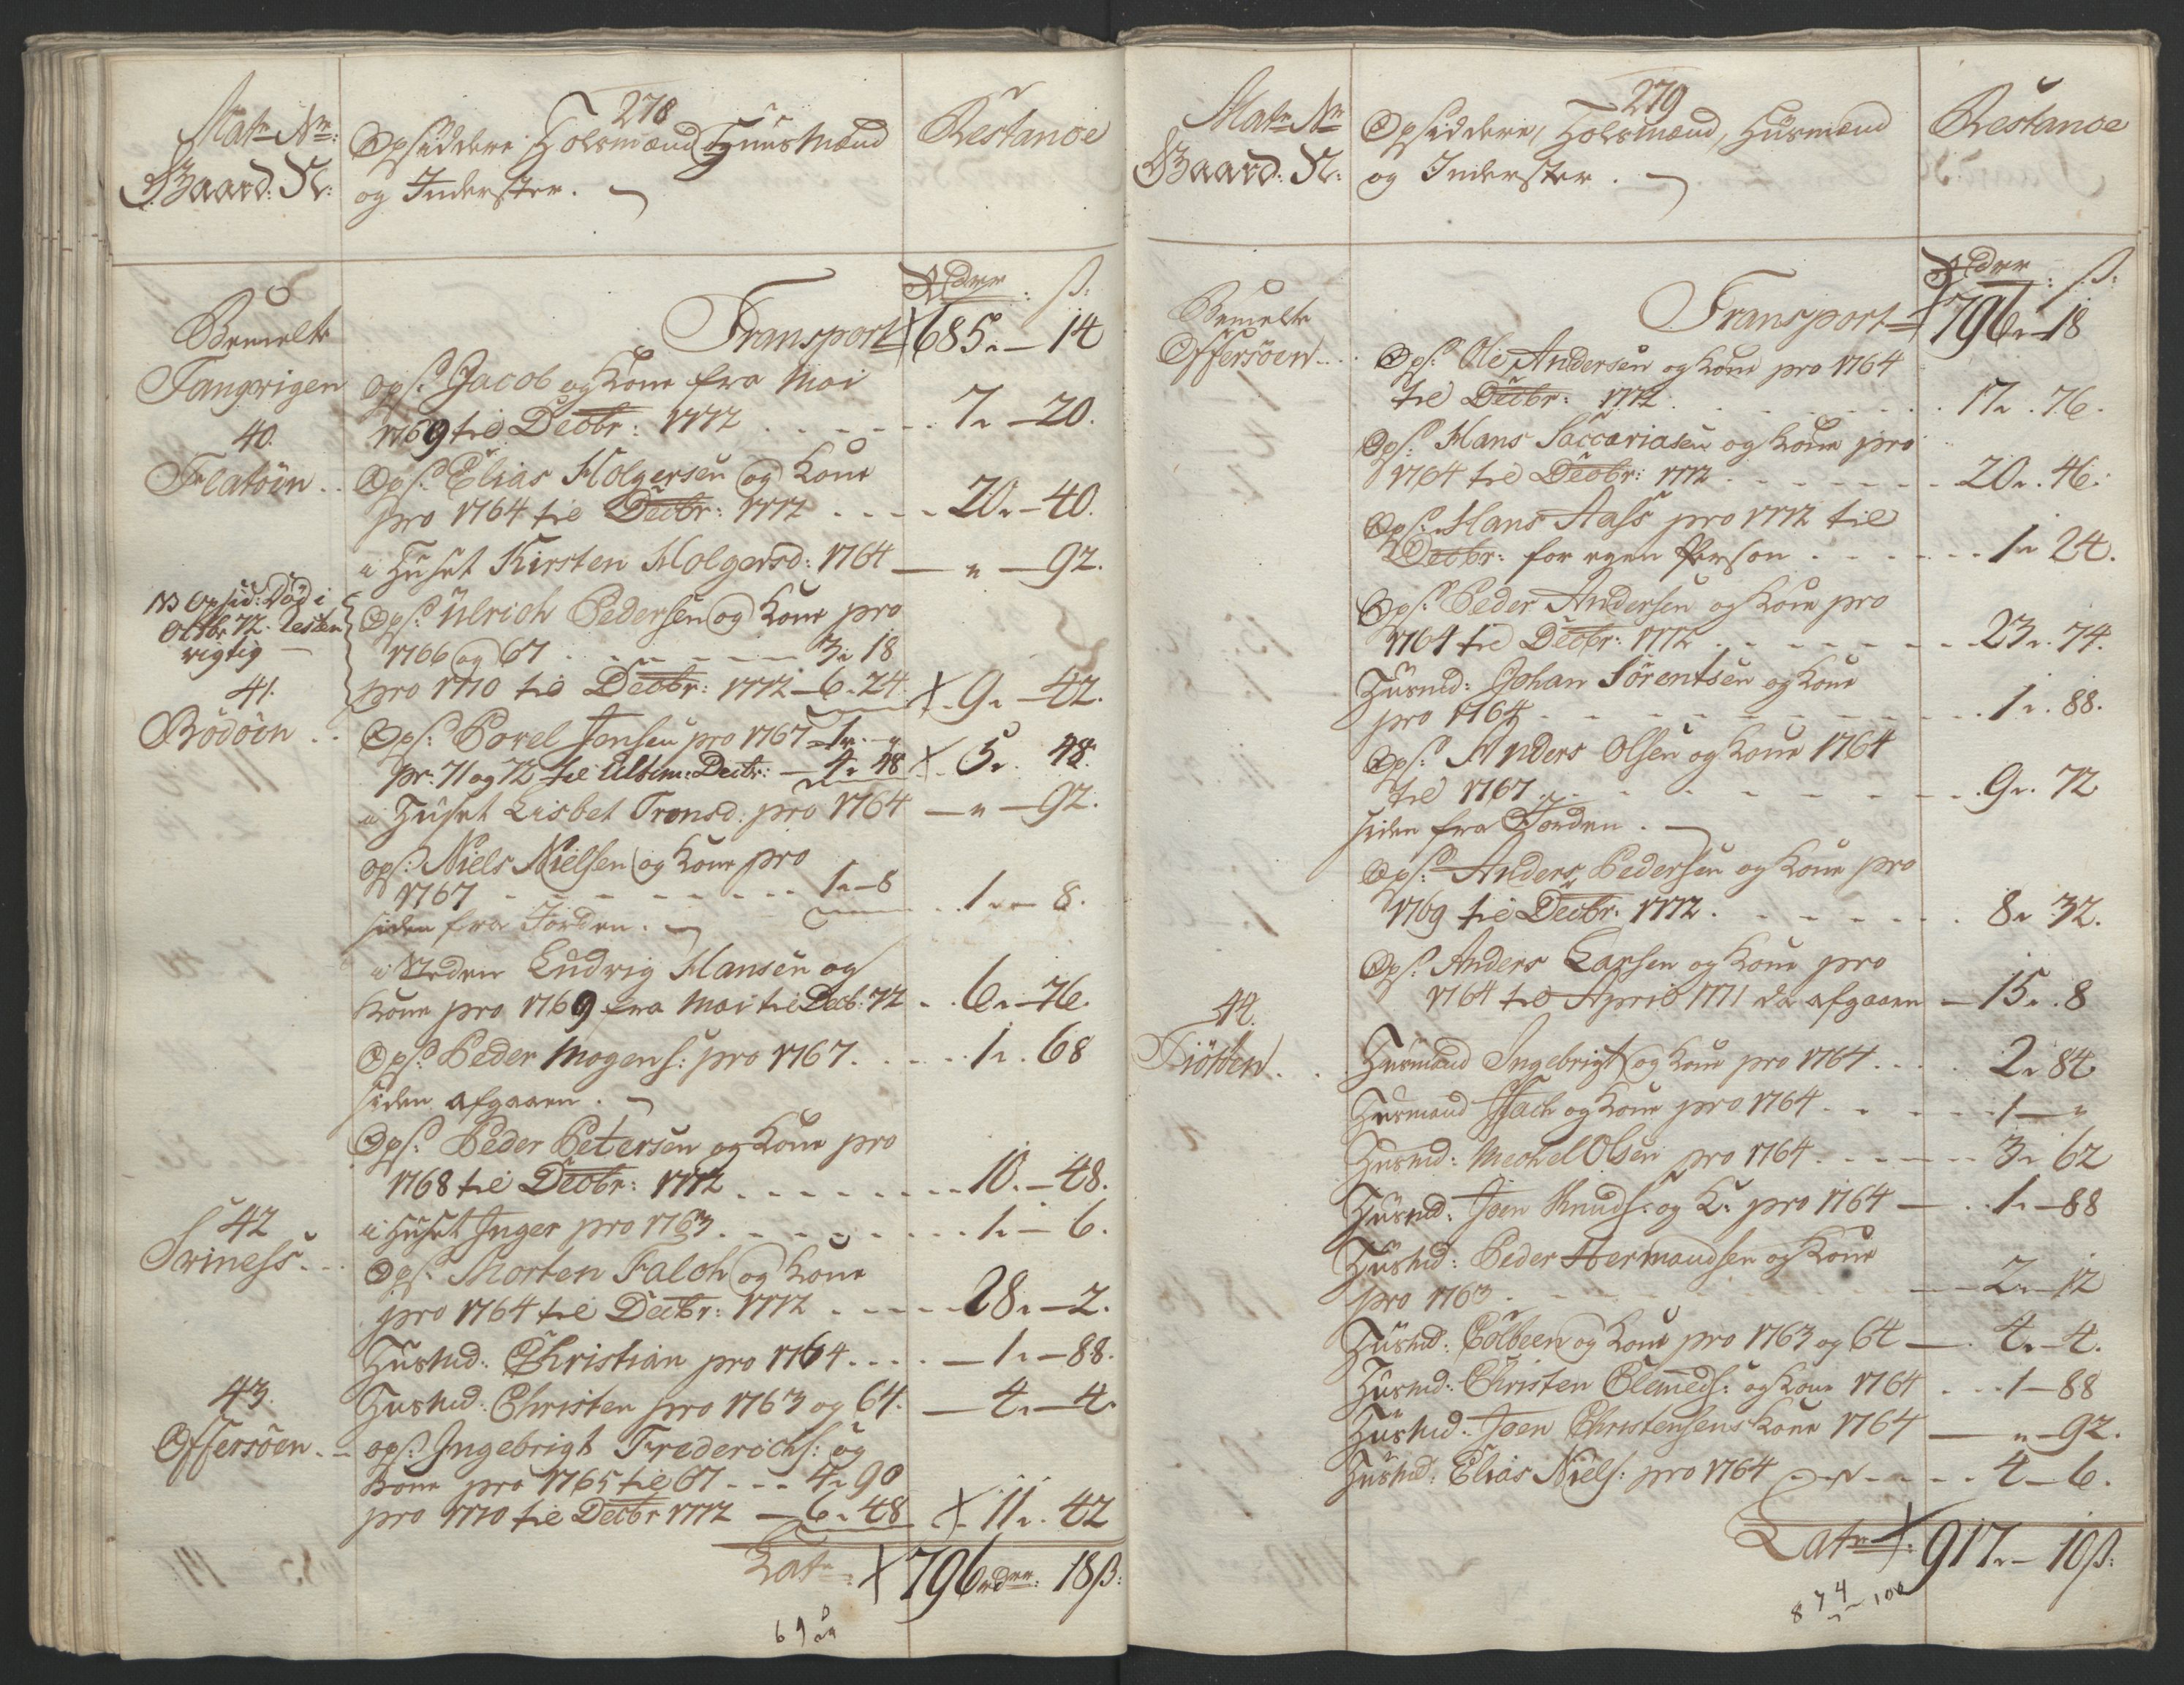 278
Mat: No:
Gaard: N:
Opsiddere, Holsmænd, Huusmænd
og Inderster.
Restance
Rdr: ß:
Bemelte
Transport 685 „ — 14
Tangvigen
Ops: Jacob og Kone fra Mai
1769 til Decbr: 1772 . . . 7 „ — 20.
40.
Flatöen . .
Ops: Elias Holgersen og Kone
pro 1764 til Decbr: 1772 . . . . 20 „ — 40.
i Huset Kirsten Holgersd: 1764 — „ — 92.
NB Opsid: död i
Octbr 72. Resten
rigtig —
Ops: Ulrich Pedersen og Kone pro
1766 og 67 . . . 3 „ 18
pro 1770 til Decbr: 1772 — 6 „ 24 9 „ — 42.
41.
Bödöen . .
Ops: Povel Jensen pro 1767 — 1 „ — „
pr: 71 og 72 til Ultim: Decbr: — 4 „ 48 5 „ 48.
i Huset Lisbet Tronsd. pro 1764 — „ — 92.
Ops: Niels Nielsen og Kone pro
1767 . . . 1 „ — 8 1 „ — 8.
siden fra Jorden. —
i Stedem Ludvig Hansen og
Kone pro 1769 fra Mai til Decb: 72 . . 6 „ — 76.
Ops: Peder Mogens: pro 1767 . . . 1 „ . 68
siden afgaaen. —
Ops: Peder Petersen og Kone pro
1768 til Decbr: 1772 . . . 10. — 48.
42
Svines . .
i Huset Inger pro 1763 . . . 1 „ — 6.
Ops: Morten Falch og Kone
pro 1764 til Decbr: 1772 . . . 28 „ — 2.
Husmd: Christian pro 1764 . . . — 1 „ — 88.
43.
Husmd: Christen pro 1763 og 64. — 4 „ — 4.
Offersöen . .
Ops: Ingebrigt Frederichs: og
Kone pro 1765 til 67 - - - 4 „ 90
pro 1770 til Decbr 1772 — 6 „ 48 11 „ . 42
Lat: 796 rdr: 18 ß:
69
279
Mat: No
Gaard: N:
Opsiddere, Holsmænd, Husmænd
og Inderster. —
Restance
Rdr: ß:
Bemelte
Offersöen . . .
Transport 796 „ — 18
Ops: Ole Andersen og Kone pro 1764
til Decbr: 1772 . . . 17 „ . 76.
Ops: Hans Saccariasen og Kone pro
1764 til Decbr: 1772 . . . 20 „ . 46.
Ops: Hans Aass pro 1772 til
Decbr: for egen Person . . . 1 „ 24.
Ops: Peder Andersen og Kone pro
1764 til Decbr: 1772 . . . 23 „ . 74.
Husmd: Johan Sörentsen og Kone
pro 1764 . . . 1 „ . 88.
Ops: Anders Olsen og Kone 1764
til 1767 . . . 9 „ . 72
siden fra Jorden. —
Ops: Anders Pedersen og Kone pro
1769 til Decbr: 1772 . . . 8 „ 32.
Ops: Anders Larsen og Kone pro
1764 til April 1771 da afgaaen — 15 „ . 8
44.
Tiötten . .
Husmand Ingebrigt og Kone pro 1764 . . . 2 „ 84
Husmand Isach og Kone pro 1764 . . . 1 — „
Husmd: Mechel Olsen pro 1764 . . . 3 „ 62
Husmd: Joen Knuds: og K: pro 1764 — . 1 „ — 88
Husmd: Peder Hermandsen og Kone
pro 1763 . . . — 2 „ — 12
Husmd: Colbeen og Kone pro 1763 og 64 — . 4 „ — 4.
Husmd: Christen Clemeds: og Kone 1764 . . . 1 — 88
Husmd: Joen Christensens Kone 1764 — „ — 92.
Husmd: Elias Niels: pro 1764 . . . 4 — 6.
Lat: 917 „ — 10 ß:
874 100